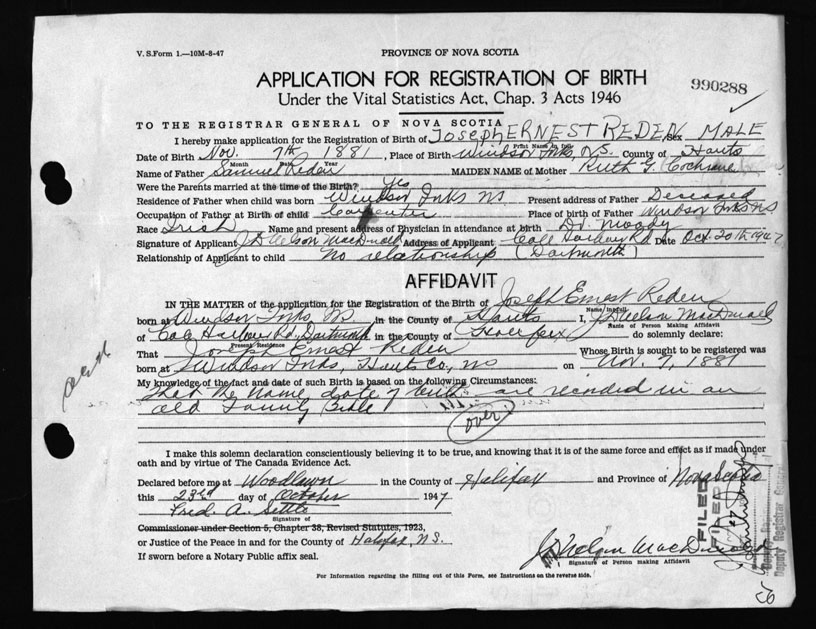 V. S. Form 1.—10M-8-47
PROVINCE OF NOVA SCOTIA
APPLICATION FOR REGISTRATION OF BIRTH
990288
Under the Vital Statistics Act, Chap. 3 Acts 1946
TO THE REGISTRAR GENERAL OF NOVA SCOTIA
I hereby make application for the Registration of Birth of Joseph ERNEST REDEN, Sex MALE
Print Name in full
Date of Birth Nov. 7th 1881, Place of Birth Windsor Frks, N.S. County of Hants
Month Date Year
Name of Father Samuel Reden MAIDEN NAME of Mother Ruth G. Cochrane
Were the Parents married at the time of the Birth? Yes
Residence of Father when child was born Windsor Frks NS Present address of Father Deceased
Occupation of Father at Birth of child Carpenter Place of birth of Father Windsor Frks NS
Race Irish Name and present address of Physician in attendance at birth Dr. Moody
Signature of Applicant J Nelson MacDonald Address of Applicant Cole Harbour Rd Date Oct. 20th 1947
Relationship of Applicant to child no relationship (Dartmouth)
AFFIDAVIT
IN THE MATTER of the application for the Registration of the Birth of Joseph Ernest Reden
Name in full
born at Windsor Frks, NS in the County of Hants I, J Nelson MacDonald
Name of Person Making Affidavit
of Cole Harbour Rd., Dartmouth in the County of Halifax do solemnly declare:
Present Residence
That Joseph Ernest Reden Whose Birth is sought to be registered was
born at Windsor Frks, Hants Co., NS on Nov. 7, 1881
My knowledge of the fact and date of such Birth is based on the following Circumstances:
that the name, date of birth are recorded in an
old Family Bible
(over)
I make this solemn declaration conscientiously believing it to be true, and knowing that it is of the same force and effect as if made under
oath and by virtue of The Canada Evidence Act.
Declared before me at Woodlawn in the County of Halifax and Province of Nova Scotia
this 23rd day of October 1947
Fred. A. Settle
Signature of
Commissioner under Section 5, Chapter 38, Revised Statutes, 1923,
or Justice of the Peace in and for the County of Halifax, N.S.
If sworn before a Notary Public affix seal.
J Nelson MacDonald
Signature of Person making Affidavit
For Information regarding the filling out of this Form, see Instructions on the reverse side.
FILED
Deputy Registrar General